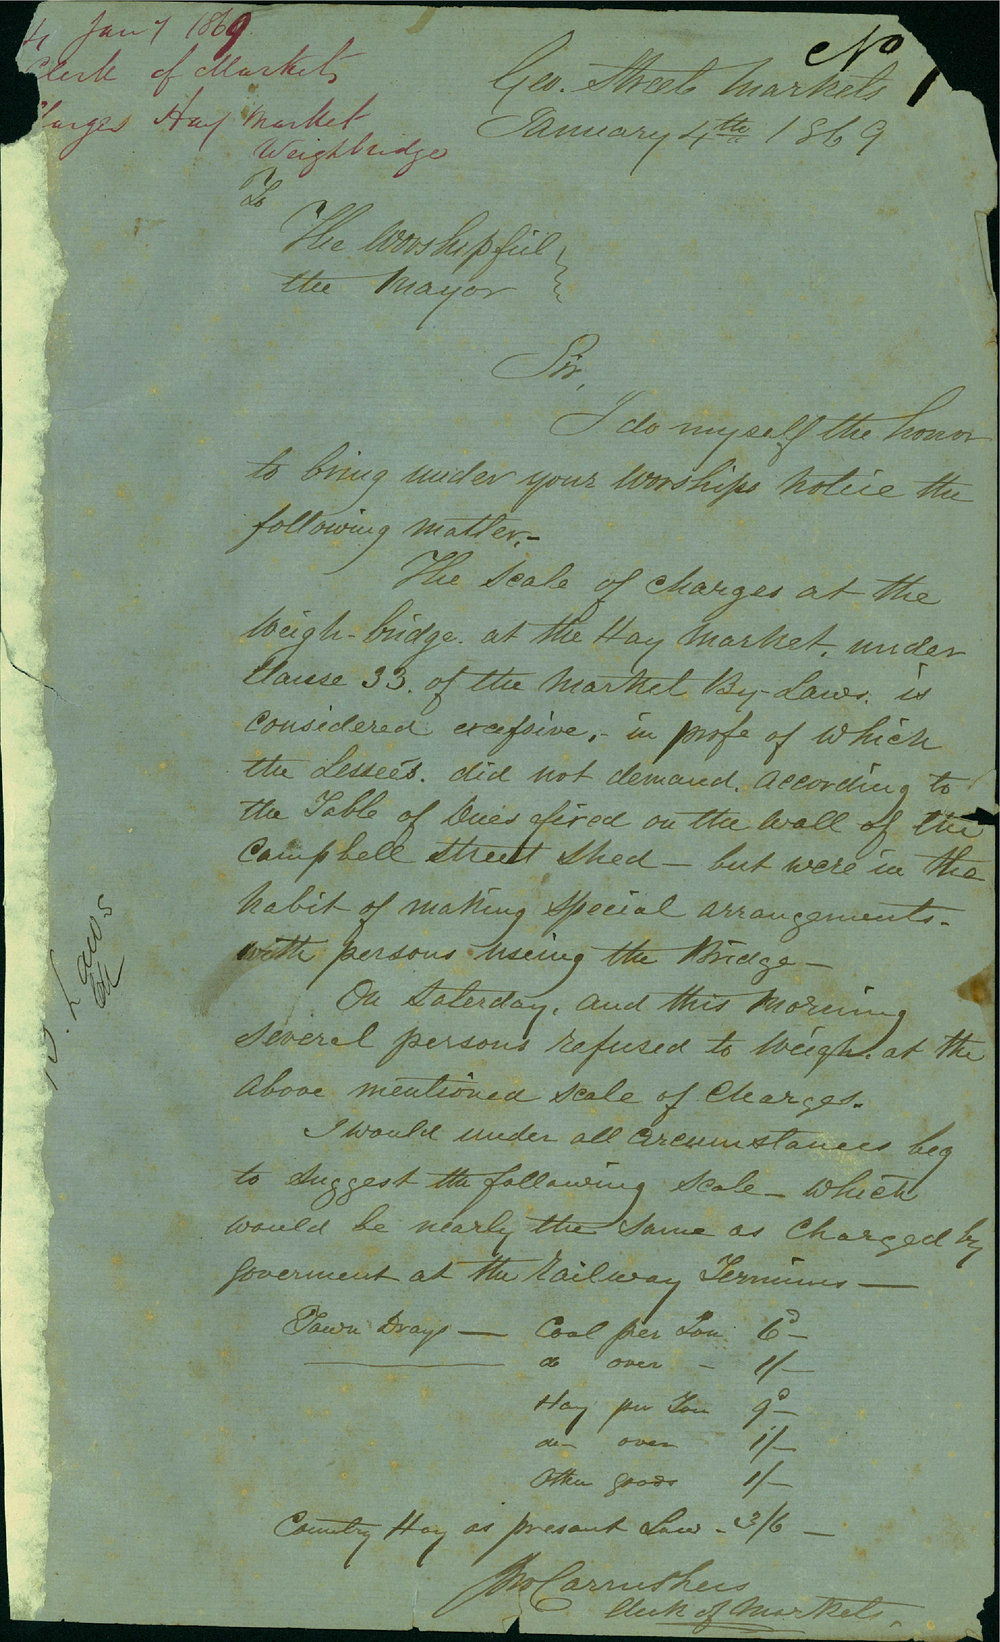 4 Jany 1869
Clerk of Markets
Charges Hay Market
Weighbridge
No 1
Geo. Street Markets
January 4th 1869
To
The Worshipful
the Mayor
Sir,
I do myself the honor
to bring under your Worships notice the
following matter.-
The Scale of Charges at the
Weigh-bridge. at the Hay Market. under
Clause 33. of the Market By-Laws. is
Considered excessive,- in profe of which
the Lessee's. did not demand. according to
the Table of Dues afixed on the Wall of the
Campbell Street Shed - but were in the
habit of making Special arrangements-
with persons useing the Bridge-
On Saterday, and this Morning
Several persons refused to Weigh. at the
above mentioned Scale of Charges.
I would under all Circumstances beg
to Suggest the following Scale - which
would be nearly the Same as Charged by
Goverment at the Railway Terminus-
Town Drays - Coal per Ton 6d-
do over - 1/-
Hay per Ton 9d-
do- over 1/-
Other goods 1/-
Country Hay as present Law - 3/6 -
Jno Carruthers
Clerk of Markets.
Laws